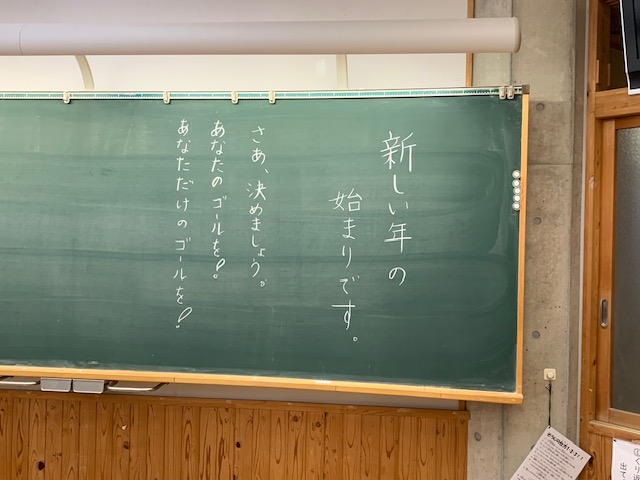 新しい年の
始まりです。
さあ、決めましょう。
あなたのゴールを!
あなただけのゴールを!